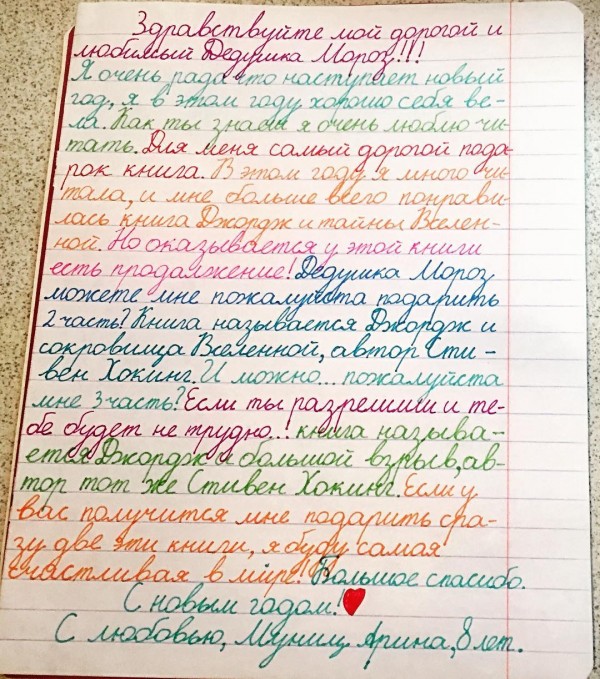 Здравствуйте мой дорогой и
любимый Дедушка Мороз!!!
Я очень рада что наступает новый
год, я в этом году хорошо себя ве-
ла. Как ты знаеш я очень люблю чи-
тать. Для меня самый дорогой пода-
рок книга. В этом году я много чи-
тала, и мне больше всего понрави-
лась книга Джордж и тайны Вселен-
ной. Но оказывается у этой книги
есть продалжение! Дедушка Мороз
можете мне пожалуйста подарить
2 часть? Книга называется Джордж и
сокровища Вселенной, автор Сти-
вен Хокинг. И можно... пожалуйста
мне 3 часть? Если ты разрешиш и те-
бе будет не трудно...! книга называ-
ется Джордж и большой взрыв, ав-
тор тот же Стивен Хокинг. Если у
вас получится мне подарить сра-
зу две эти книги, я буду самая
счастливая в мире! Большое спасибо.
С новым годом!
С любовью, Арина, 8 лет.